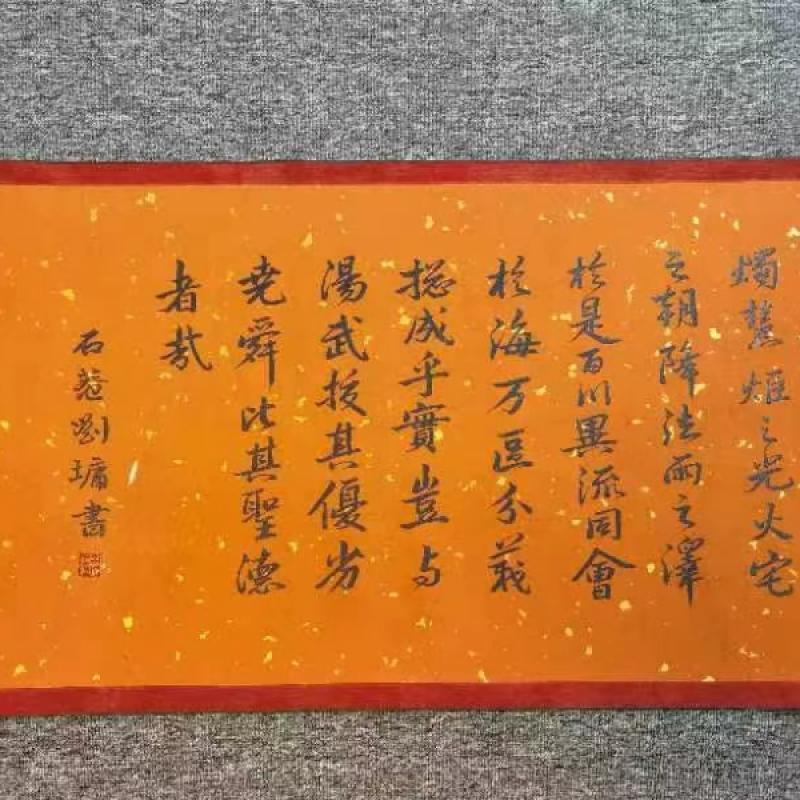 燭慧炬之光火宅
之朝降法雨之澤
扵是百川異流同會
扵海万區分義
揔成乎實豈与
湯武挍其優劣
堯舜比其聖德
者哉
石菴劉墉書